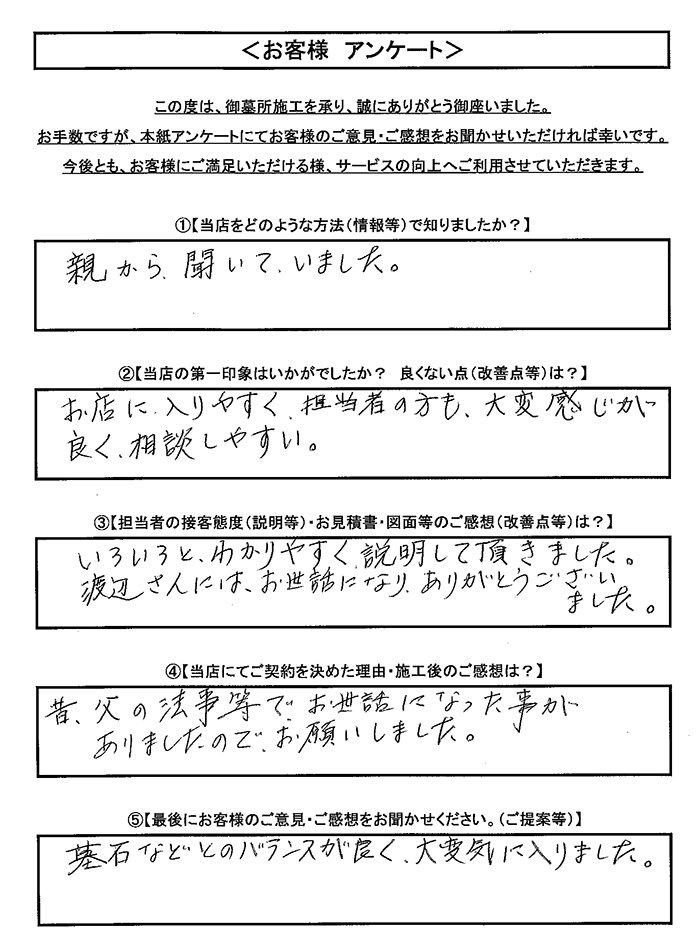 ＜お客様　アンケート＞
この度は、御墓所施工を承り、誠にありがとう御座いました。
お手数ですが、本紙アンケートにてお客様のご意見・ご感想をお聞かせいただければ幸いです。
今後とも、お客様にご満足いただける様、サービスの向上へご利用させていただきます。
①【当店をどのような方法（情報等）で知りましたか？】
親から、聞いて、いました。
②【当店の第一印象はいかがでしたか？　良くない点（改善点等）は？】
お店に、入りやすく、担当者の方も、大変感じが
良く、相談しやすい。
③【担当者の接客態度（説明等）・お見積書・図面等のご感想（改善点等）は？】
いろいろと、わかりやすく、説明して頂きました。
渡辺さんには、お世話になり、ありがとうござい
ました。
④【当店にてご契約を決めた理由・施工後のご感想は？】
昔、父の法事等で、お世話になった事が
ありましたので、お願いしました。
⑤【最後にお客様のご意見・ご感想をお聞かせください。（ご提案等）】
墓石などとのバランスが良く、大変気に入りました。